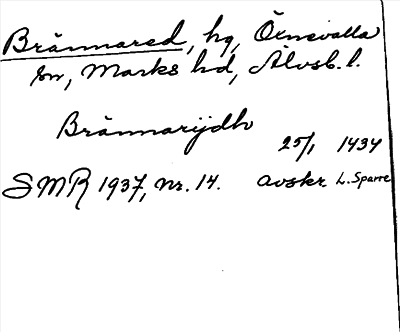 Brännared, hg, Örnevalla
sn, Marks hd, Älvsb. l.
Brännarijdh
25/1 1434
SMR 1937, nr. 14. avskr L. Sparre